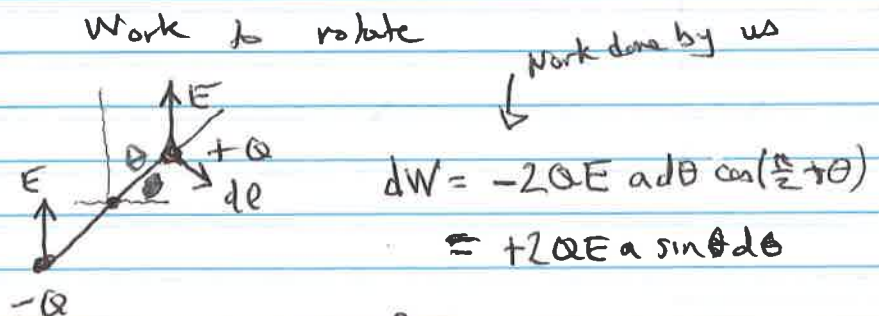 Work to rotate
Work done by us
E
θ +Q
E
dl
dW = -2QE a dθ cos(π/2 + θ)
= +2QE a sinθ dθ
-Q